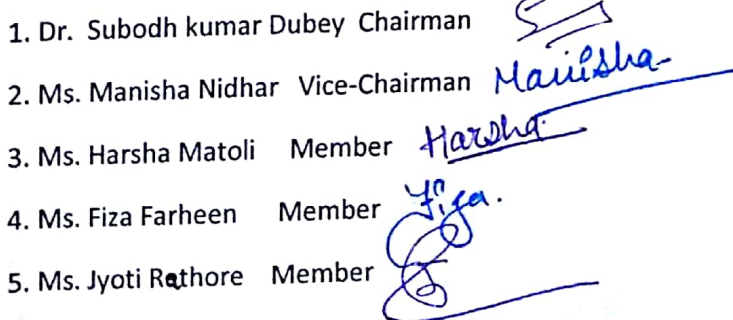 1. Dr. Subodh kumar Dubey Chairman
2. Ms. Manisha Nidhar Vice-Chairman Manisha
3. Ms. Harsha Matoli Member Harsha
4. Ms. Fiza Farheen Member Fiza.
5. Ms. Jyoti Rathore Member